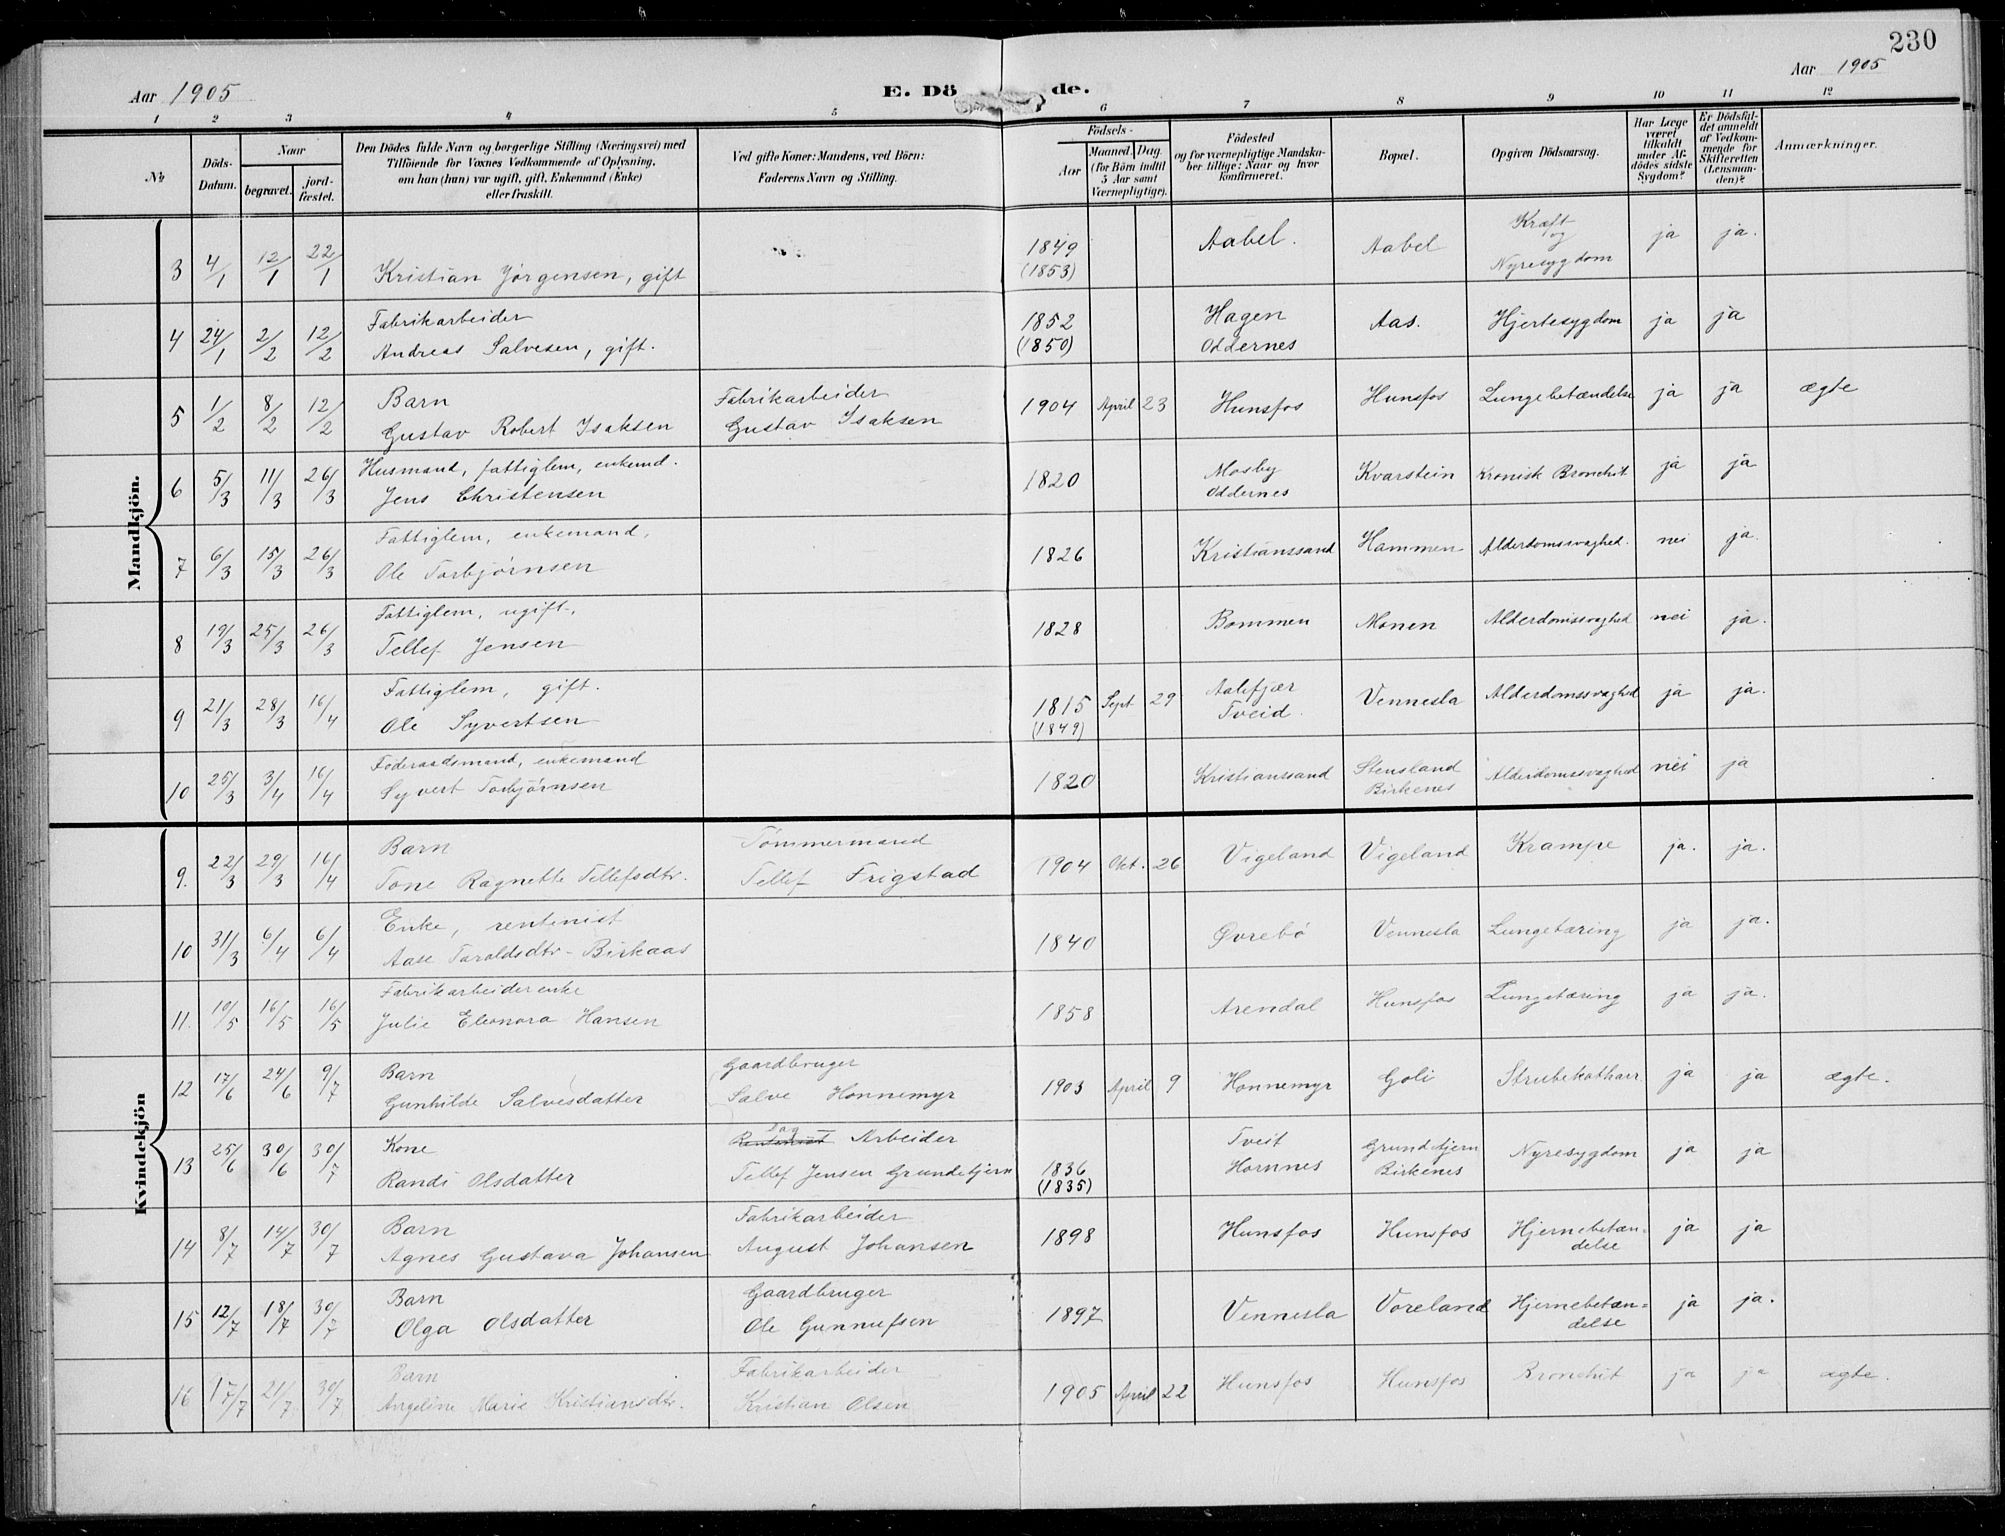 230
Aar 1905
E. Dö de.
Aar 1905
1 2 3 4 5 6 7 8 9 10 11 12
No
Döds-Datum.
Naar
begravet.
jord-fæstet.
Den Dödes fulde Navn og borgerlige Stilling (Næringsvei) med
Tilföiende for Voxnes Vedkommende af Oplysning,
om han (hun) var ugift, gift, Enkemand (Enke)
eller fraskilt.
Ved gifte Koner: Mandens, ved Börn:
Faderens Navn og Stilling.
Födsels-
Aar
Maaned. Dag
(for Börn indtil
5 Aar samt
Værnepligtige).
Födested
og for værnepligtige Mandska-
ber tillige: Naar og hvor
konfirmeret.
Bopæl.
Opgiven Dödsaarsag.
Har Læge
været
tilkaldt
under Af-
dödes sidste
Sygdom?
Er Dödsfal-
det anmeldt
af Vedkom-
mende for
Skifteretten
(Lensman-
den)?
Anmærkninger.
Mandkjön.
3 4/1 12/1 22/1 Kristian Jørgensen, gift 1849 (1853) Aabel. Aabel Kræft og Nyresygdom ja ja.
4 24/1 2/2 12/2 Fabrikarbeider
Andreas Salvesen, gift. 1852 (1850) Hagen Oddernes Aas. Hjertesygdom ja ja
5 1/2 8/2 12/2 Barn
Gustav Robert Isaksen Fabrikarbeider Gustav Isaksen 1904 April 23 Hunsfos Hunsfos Lungebetændelse ja ja ægte
6 5/3 11/3 26/3 Husmand, fattiglem, enkemd.
Jens Christensen 1820 Mosby Oddernes Kvarstein Kronisk Bronchit ja ja
7 6/3 15/3 26/3 Fattiglem, enkemand,
Ole Torbjørnsen 1826 Kristianssand Hammen Alderdomssvaghed. nei ja.
8 19/3 25/3 26/3 Fattiglem, ugift.
Tellef Jensen 1828 Bommen Monen Alderdomssvaghed nei ja.
9 21/3 28/3 16/4 Fattiglem, gift.
Ole Syvertsen 1815 (1849) Sept 29 Aalefjær Tveid. Vennesla Alderdomssvaghed ja ja.
10 25/3 3/4 16/4 Föderaadsmand, enkemand
Syvert Torbjørnsen 1820 Kristianssand Stensland Birkenes Alderdomssvaghed nei ja
Kvindekjön
9. 22/3 29/3 16/4 Barn
Tone Ragnette Tellefsdtr. Tømmermand Tellef Frigstad 1904 Okt. 26 Vigeland Vigeland Krampe ja. ja.
10 31/3 6/4 6/4 Enke, rentenist
Aase Taraldsdtr - Birkaas 1840 Øvrebö Vennesla Lungetæring ja ja.
11. 10/5 16/5 16/5 Fabrikarbeiderenke
Julie Eleonora Hansen 1858 Arendal Hunsfos Lungetæring ja ja.
12 17/6 24/6 9/7 Barn
Gunhilde Salvesdatter Gaardbruger Salve Honnemyr 1903 April 9 Honnemyr Goli Strubekatharr ja ja ægte.
13 25/6 30/6 30/7 Kone
Randi Olsdatter Dag Arbeider Tellef Jensen Grundetjern 1836 (1835) Tveit Hornnes Grundetjern Birkenes Nyresygdom ja ja
14 8/7 14/7 30/7 Barn
Agnes Gustava Johansen Fabrikarbeider August Johansen 1898 Hunsfos Hunsfos Hjernebetændelse ja ja
15 12/7 18/7 30/7 Barn
Olga Olsdatter Gaardbruger Ole Gunnufsen 1897 Vennesla Voreland Hjernebetæn=delse ja ja.
16 17/7 21/7 30/7 Barn
Angeline Marie Kristiansdtr. Fabrikarbeider Kristian Olsen 1905 April 22 Hunsfos Hunsfos Bronchit ja ja ægte.